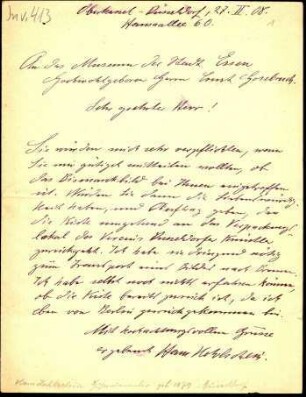 Inv. 413
Oberkassel-Düsseldorf, 27. II. 08.
Hansaallee 60.
An das Museum der Stadt Essen
Hochwohlgeboren Herrn Ernst Gosebruch.
Sehr geehrter Herr!
Sie würden mich sehr verpflichten, wenn
Sie mir gütigst mitteilen wollten, ob
das Bismarckbild bei Ihnen eingetroffen
ist. Würden Sie dann die
haben, und Auftrag geben, dass
die Kiste umgehend an das
lokal des Vereins Düsseldorfer Künstler
zurückgeht. Ich habe sie dringend nötig
zum Transport eines Bildes nach
Ich habe selbst noch nicht erfahren können,
ob die Kiste bereits zurück ist, da ich
eben von Berlin zurückgekommen bin.
Mit hochachtungsvollem Grusse
ergebenst Hans Kohlschein.
Hans Kohlschein 1879 Düsseldorf